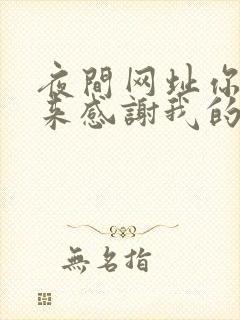 夜間网址你
来感謝我的
無名指